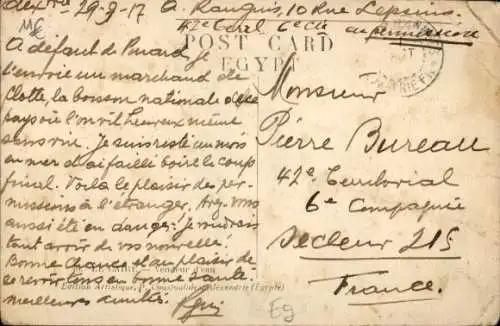 29-9-17 A. Rangui, 10 Rue Lepsius
42e Territ 6e Cie en permission
POST CARD
EGYPT
A défaut de Pinard je
t'envoie un marchand de
Clotte, la boisson nationale de ce
pays où l'on vit heureux même
sans vin. Je suis resté un mois
en mer et ai failli boire le coup
final. Voilà le plaisir des per-
missions à l'étranger. Avez-vous
aussi été en danger? Je voudrais
tant avoir de vos nouvelles!
Bonne Chance et au plaisir de
se revoir tous en bonne santé
meilleures amitiés.
Monsieur
Pierre Bureau
42e Territorial
6e Compagnie
Secteur 215
France.
LE CAIRE. — Vendeur d'eau
Edition Artistique, Alexandrie (Egypte)
Eg